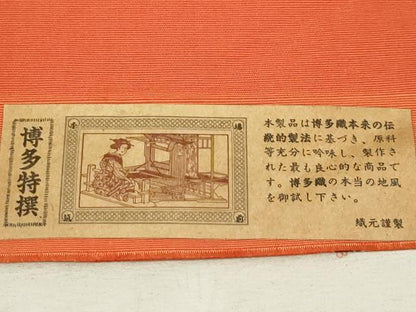 博多特撰
本製品は博多織本来の伝
統的製法に基づき、原料
等充分に吟味し、製作さ
れた最も良心的な商品で
す。博多織の本当の地風
を御試し下さい。
織元謹製